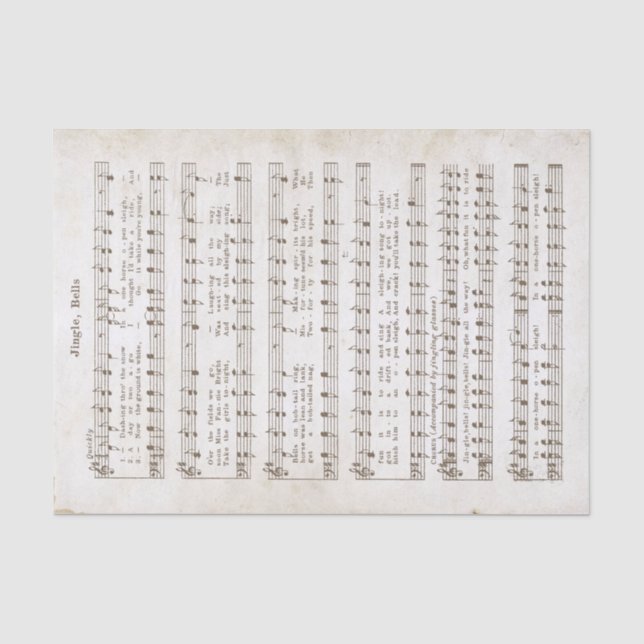 Jingle, Bells
Quickly
1. — Dash-ing thro' the snow In a one-horse o-pen sleigh, —
2. A day or two a-go I thought I'd take a ride, And
3. — Now the ground is white, — Go it while you're young, —
O'er the fields we go, — Laugh-ing all the way; —
soon Miss Fan-nie Bright Was seat-ed by my side; The
Take the girls to-night, And sing this sleigh-ing song; Just
Bells on bob-tail ring, — Mak-ing spir-its bright, What
horse was lean and lank, Mis-for-tune seem'd his lot, He
get a bob-tailed nag, Two-for-ty for his speed, Then
fun it is to ride and sing A sleigh-ing song to-night!
got in-to a drift-ed bank, And we, we got up-sot.
hitch him to an o-pen sleigh, And crack! you'll take the lead.
CHORUS (Accompanied by jingling glasses)
Jin-gle, bells! jin-gle, bells! Jin-gle all the way! Oh, what fun it is to ride
In a one-horse o-pen sleigh! In a one-horse o-pen sleigh!